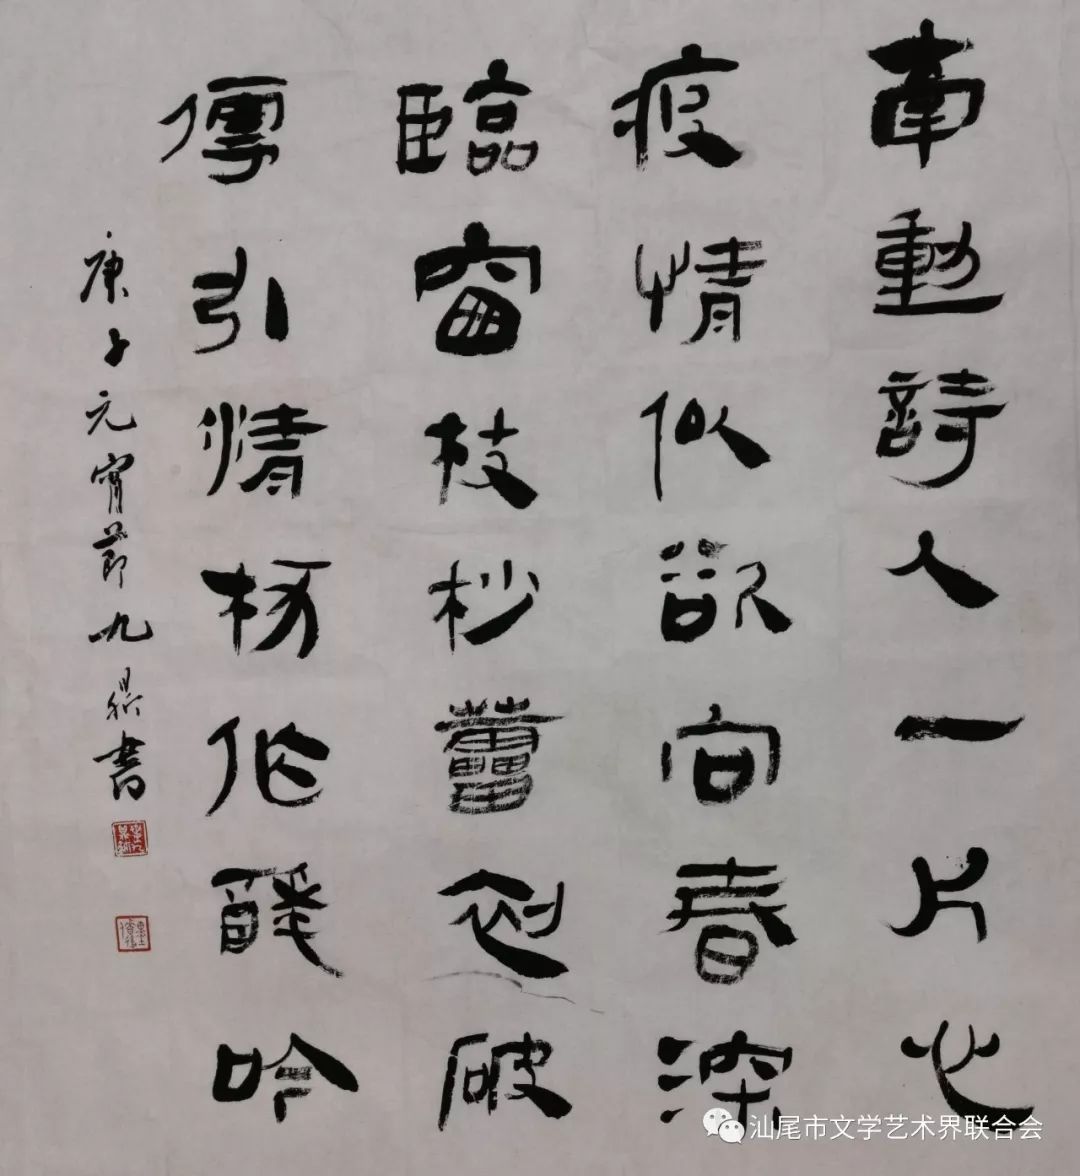 牽動詩人一片心
疫情似欲向春深
臨窗枝杪蕾初破
傳引情作吟
庚子元宵節九書
汕尾市文学艺术界联合会